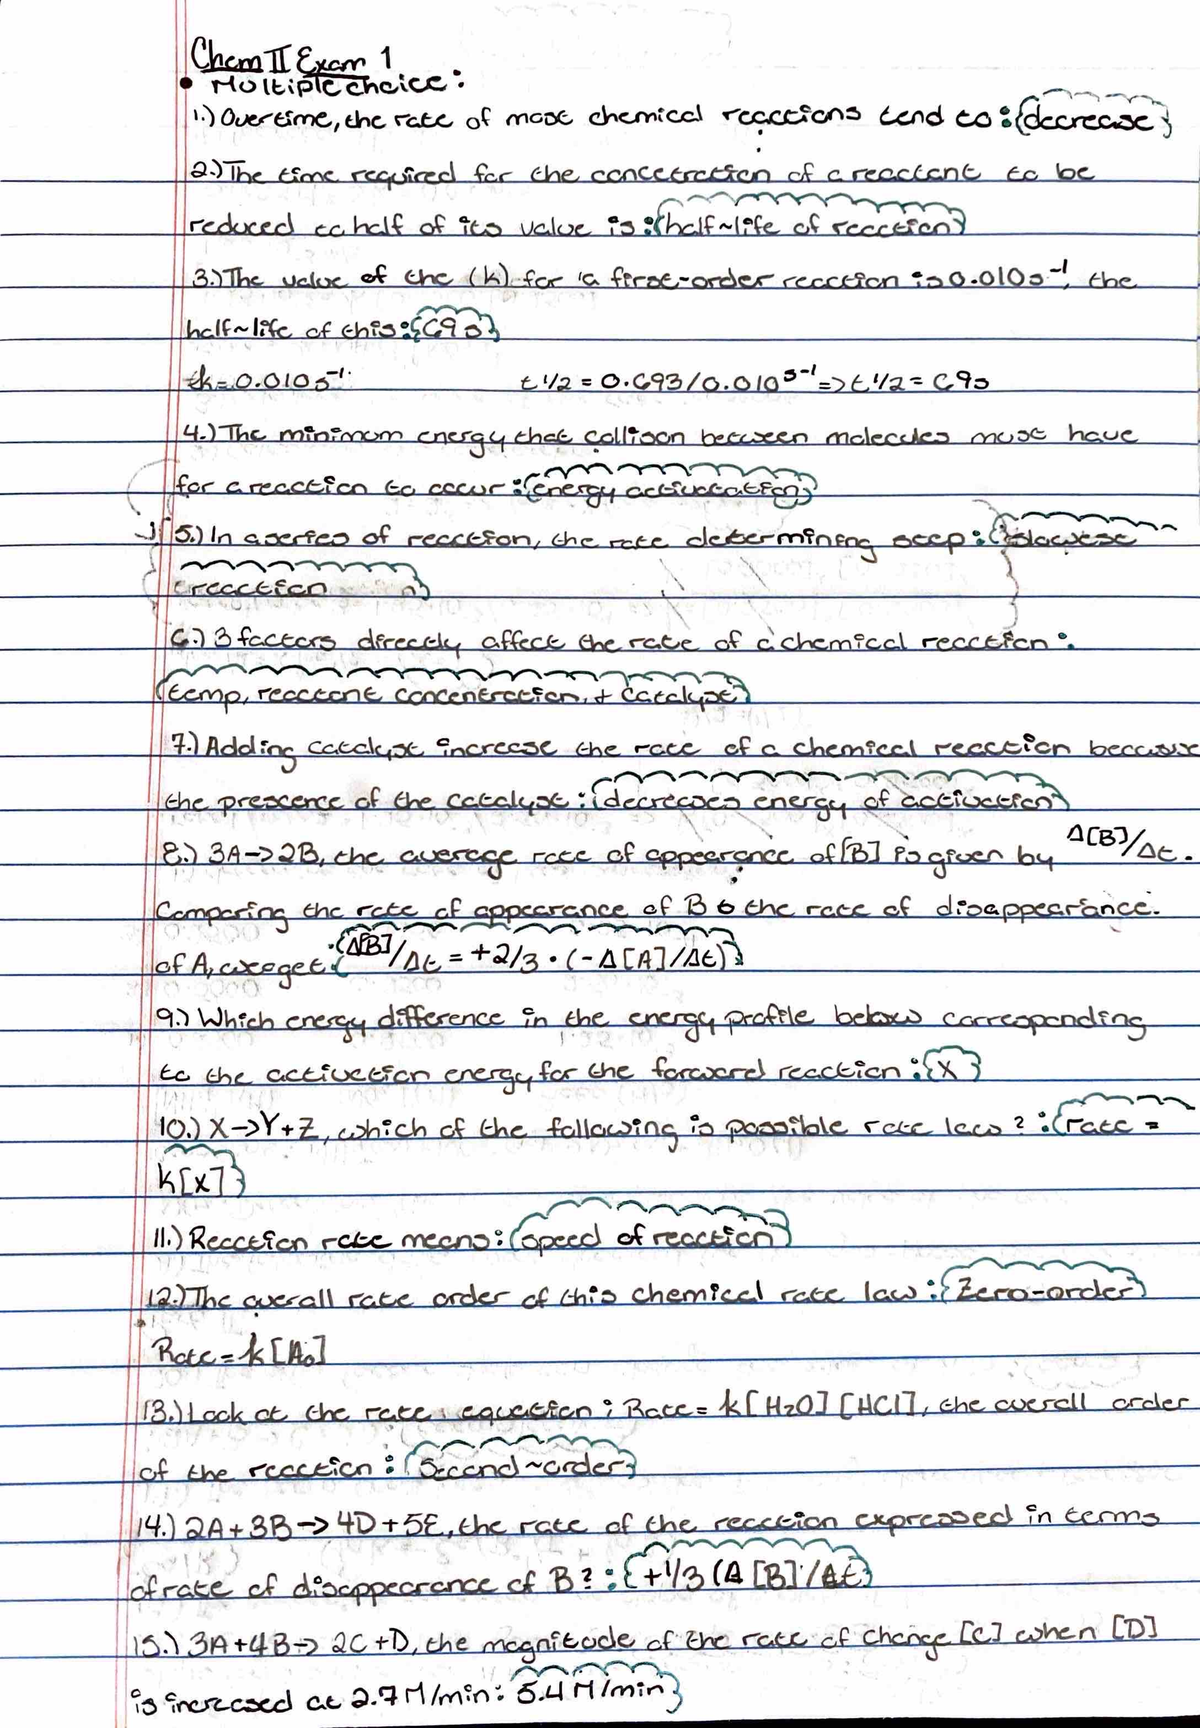 Chem II Exam 1
• Multiple choice:
1.) Overtime, the rate of most chemical reactions tend to: {decrease}
2.) The time required for the concetration of a reactant to be
reduced to half of its value is: {half~life of reaction}
3.) The value of the (k) for a first-order reaction is 0.010s⁻¹, the
half~life of this: {69s}
k=0.010s⁻¹ t 1/2 = 0.693/0.010 s⁻¹ => t 1/2 = 69s
4.) The minimum energy that collison between molecules must have
for a reaction to occur: {energy activatation}
5.) In a series of reaction, the rate determining step: {slowest
reaction}
6.) 3 factors directly affect the rate of a chemical reaction:
{temp, reactant concentration, + catalyst}
7.) Adding catalyst increase the rate of a chemical reaction because
the prescence of the catalyst: {decreases energy of activation}
8.) 3A->2B, the average rate of appearance of [B] is given by Δ[B]/Δt.
Comparing the rate of appearance of B to the rate of disappearance.
of A, we get: {Δ[B]/Δt = +2/3 • (-Δ[A]/Δt)}
9.) Which energy difference in the energy profile below corresponding
to the activation energy for the forward reaction: {X}
10.) X->Y+Z, which of the following is possible rate law?: {rate =
k[x]}
11.) Reaction rate means: {speed of reaction}
12.) The overall rate order of this chemical rate law: {Zero-order}
Rate = k[A₀]
13.) Look at the rate equation; Rate= k[H₂O][HCl], the overall order
of the reaction: {Second~order}
14.) 2A+3B->4D+5E, the rate of the reaction expressed in terms
of rate of disappearance of B?: {+1/3 (Δ[B]/Δt}
15.) 3A+4B->2C+D, the magnitude of the rate of change [C] when [D]
is increased at 2.7 M/min: {5.4 M/min}